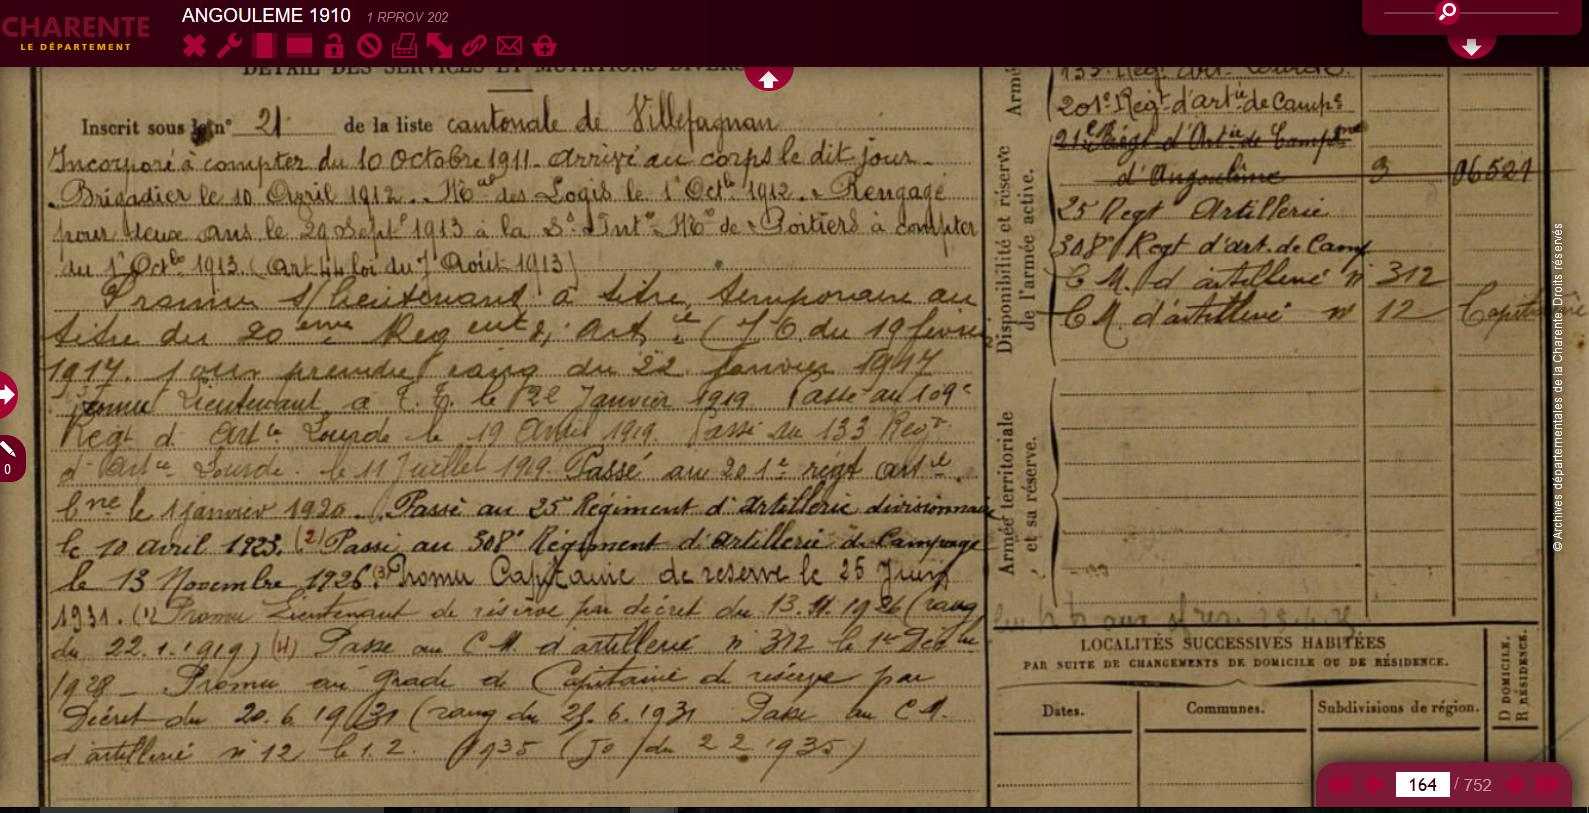 CHARENTE
LE DÉPARTEMENT
ANGOULEME 1910 1 RPROV 202
DÉTAIL DES SERVICES ET MUTATIONS DIVERS
Inscrit sous le n° 21 de la liste cantonale de Villefagnan
Incorporé à compter du 10 Octobre 1911. Arrivé au corps le dit jour.
Brigadier le 10 Avril 1912. Mal des Logis le 1er Octbre 1912. Rengagé
pour deux ans le 29 Septbre 1913 à la Ss Intce Mre de Poitiers à compter
du 1er Octbre 1913. (Art 44 loi du 7 Août 1913)
Promu s/lieutenant à titre temporaire au
titre du 20ème Regent d'Artie (JO du 19 février
1917. pour prendre rang du 22 Janvier 1917
promu Lieutenant a T.T. le 22 Janvier 1919 Passé au 109e
Regt d'Artie Lourde le 19 Avril 1919. Passé au 133 Regt
d'Artie Lourde le 11 Juillet 1919. Passé au 201e régt artie
Cne le 1 janvier 1920. Passé au 25e Régiment d'Artillerie divisionnaire
le 10 avril 1923. (2) Passé au 308e Régiment d'Artillerie de Campagne
le 13 Novembre 1926. (3) Promu Capitaine de reserve le 25 Juin
1931. (1) Promu Lieutenant de réserve par décret du 13.11.1926 (rang
du 22.1.1919) (4) Passé au C M. d'artillerie n° 312 le 1er
1928 _ Promu au grade de Capitaine de réserve par
Décret du 20.6.1931 (rang du 25.6.1931 Passé au C M.
d'artillerie n° 12 le 1.2.1935 (JO du 2 2 1935)
Armé
133e Régt Art. Lourde.
201e Régt d'artie de Campe
Disponibilité et réserve
de l'armée active.
21e Régt d'Artie de Campne
d'Angoulême 3 06521
25 Regt Artillerie
308e Regt d'art. de Camp
C M. d'artillerie n° 312
C M. d'artillerie n° 12 Capitaine
Armée territoriale
et sa réserve.
LOCALITÉS SUCCESSIVES HABITÉES
PAR SUITE DE CHANGEMENTS DE DOMICILE OU DE RÉSIDENCE.
Dates. Communes. Subdivisions de région.
D DOMICILE.
R RÉSIDENCE.
© Archives départementales de la Charente. Droits réservés
0
164 / 752